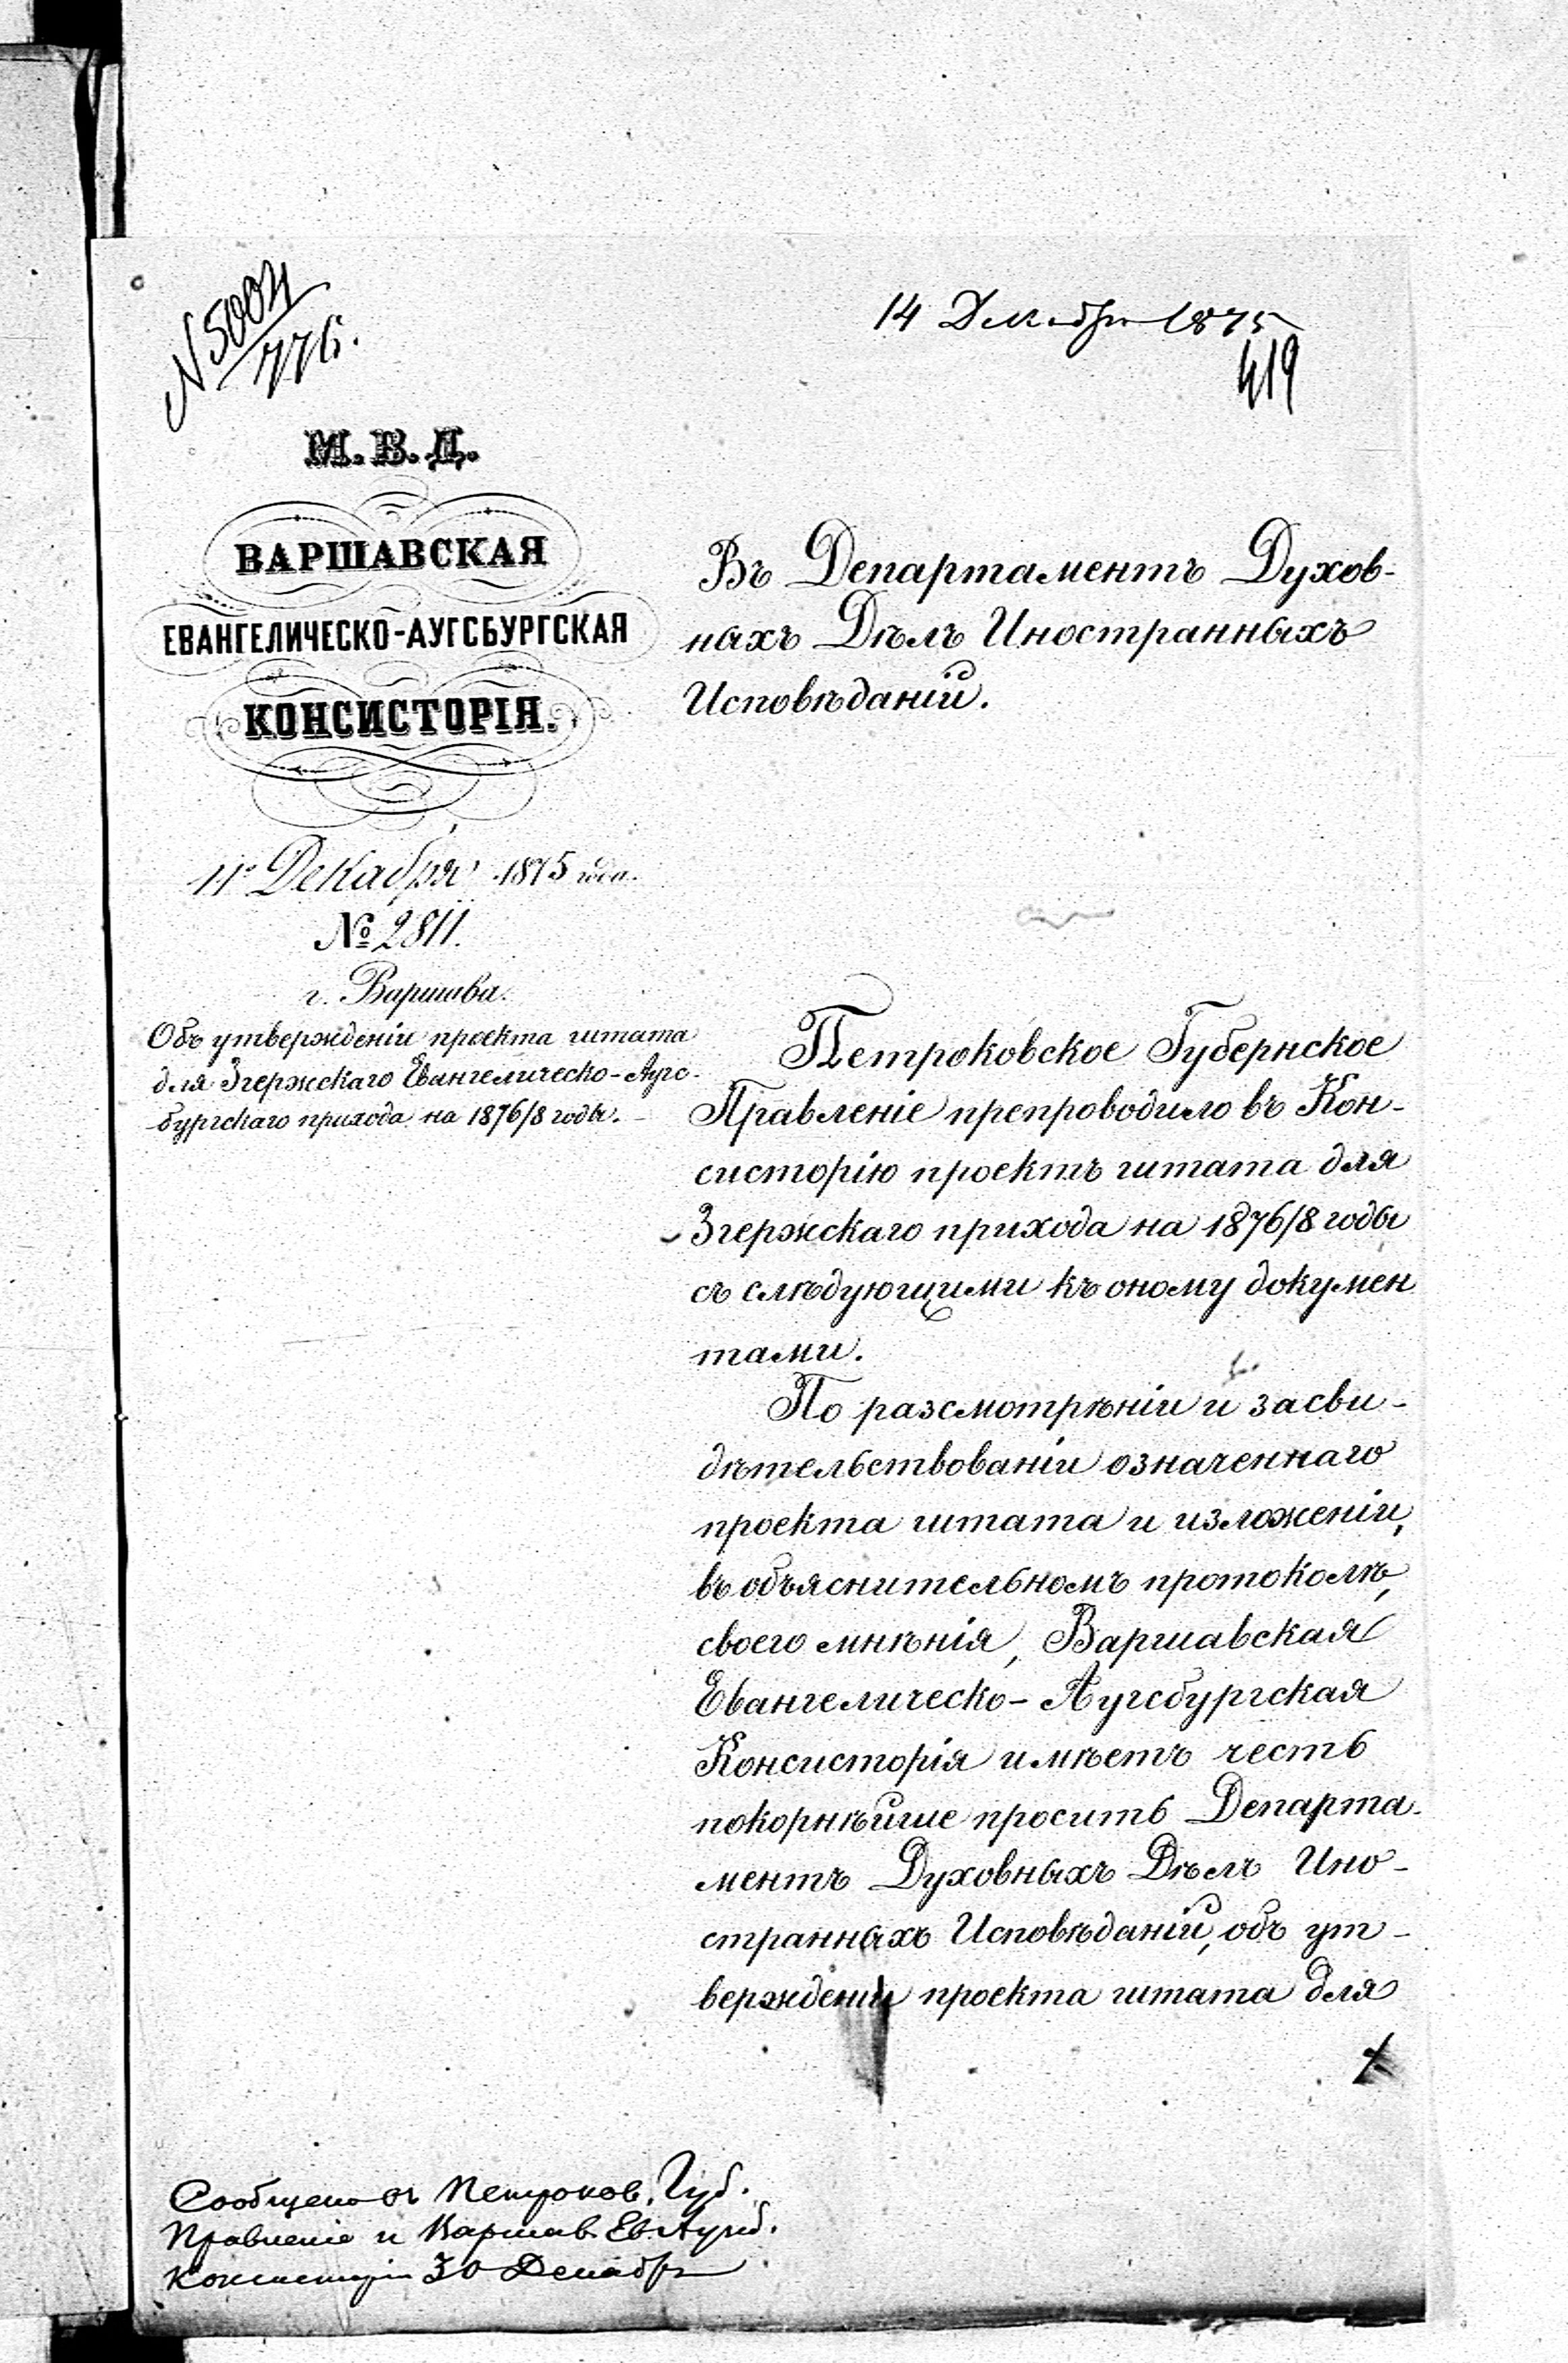 N 5004
776.
14 Декабря 1875
419
М. В. Д.
ВАРШАВСКАЯ
ЕВАНГЕЛИЧЕСКО-АУГСБУРГСКАЯ
КОНСИСТОРІЯ.
11го Декабря 1875 года.
№ 2811.
г. Варшава.
Объ утвержденіи проекта штата
для Згержскаго Евангелическо-Аугс-
бургскаго прихода на 1876/8 годы.
Въ Департаментъ Духов-
ныхъ Дѣлъ Иностранныхъ
Исповѣданій.
Петроковское Губернское
Правленіе препроводило въ Кон-
систорію проектъ штата для
Згержскаго прихода на 1876/8 годы
съ слѣдующими къ оному докумен
тами.
По разсмотрѣніи и засви-
дѣтельствованіи означеннаго
проекта штата и изложеніи,
въ объяснительномъ протоколѣ,
своего мнѣнія, Варшавская
Евангелическо-Аугсбургская
Консисторія имѣетъ честь
покорнѣйше просить Департа-
ментъ Духовныхъ Дѣлъ Ино-
странныхъ Исповѣданій, объ ут-
вержденіи проекта штата для
Сообщено въ Петроков. Губ.
Правленіе и Варшав. Ев. Аугсб.
Консисторіи 30 Декабря